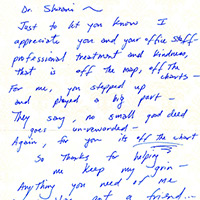 Dr. Shirani ~
Just to let you know I
appreciate you and your office staff
professional treatment and kindness,
that is off the map, off the
charts —
For me, you stepped up
and played a big part —
They say, no small good deed
goes un-rewarded —
Again, for you its off the chart
So Thanks for helping
me keep my grin —
Anything you need of me
not a friend...